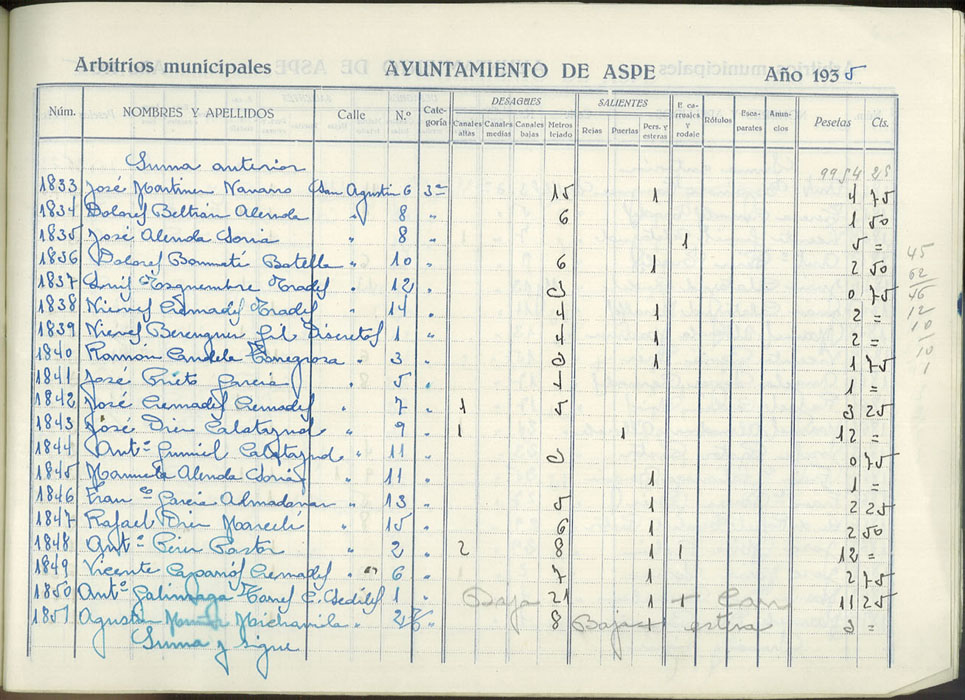 Arbitrios municipales AYUNTAMIENTO DE ASPE Año 1935
Núm. NOMBRES Y APELLIDOS Calle N.º Categoría DESAGUES Canales altas Canales medias Canales bajas Metros tejado SALIENTES Rejas Puertas Pers. y esteras E. carruajes y rodaje Rótulos Escaparates Anuncios Pesetas Cts.
Suma anterior 9954 28
1833 José Martinez Navarro San Agustin 6 3ª 15 1 4 75
1834 Dolores Beltrán Alenda " 8 " 6 1 50
1835 José Alenda Soria " 8 " 1 5 =
1836 Dolores Bonmatí Botella " 10 " 6 1 2 50
1837 Esquembre 12 " 3 0 75
1838 Nieves Cremades 14 " 4 1 2 =
1839 Nieves Berenguer Gil Discretos 1 " 4 1 2 =
1840 Ramón Candela Torregrosa " 3 " 3 1 1 75
1841 José Prieto García " 5 " 4 1 =
1842 José Cremades Cremades " 7 " 1 5 3 25
1843 José Calatayud " 9 " 1 1 12 =
1844 Antº Calatayud " 11 " 3 0 75
1845 Manuela Alenda Soria " 11 " 1 1 =
1846 Franco García Almodovar " 13 " 5 1 2 25
1847 Rafael " 15 " 6 1 2 50
1848 Antº Pastor " 2 " 2 8 1 1 12 =
1849 Vicente Caparrós Cremades " 6 " 7 1 2 75
1850 Antº Galinsoga C. Sediles 1 " Baja 21 1 + Can 11 25
1851 Agustin Michavila " 2 " 8 Baja + estera 3 =
Suma y sigue
45
62
46
12
10
10
1